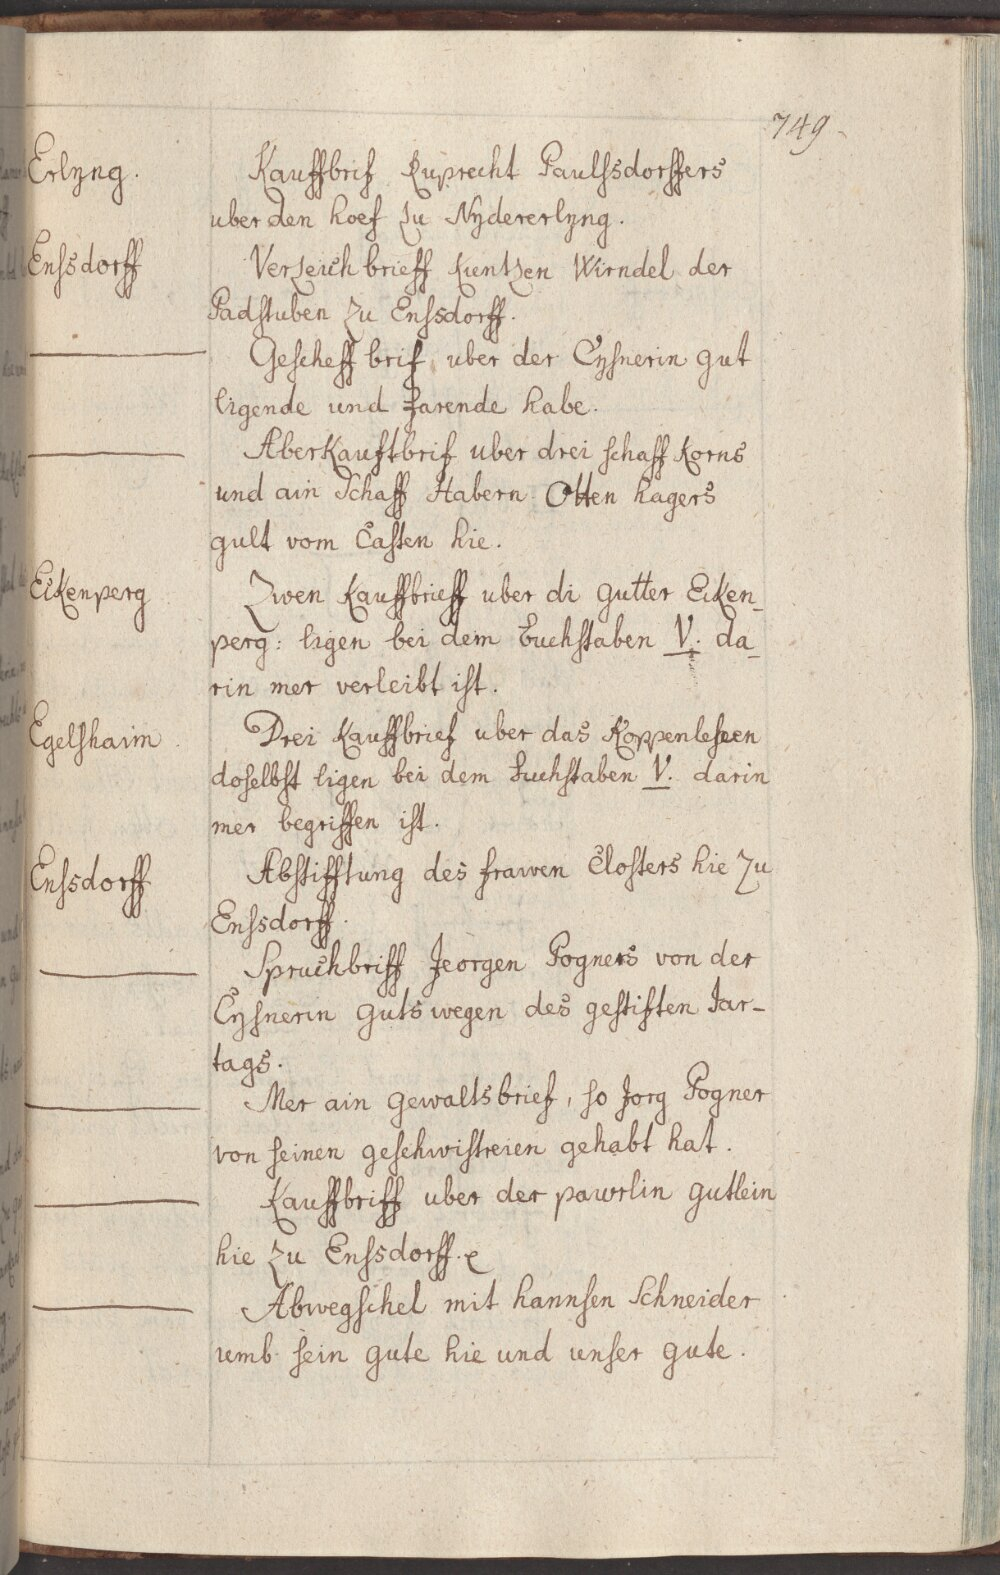 749
Erlyng. Kauffbrif Ruprecht Paulsdorffers
uber den hoef zu Nydererlyng.
Ensdorff Verzeichbrieff Kuntzen Wirndel der
Padstuben zu Ensdorff.
Gescheff brif uber der Eysnerin gut
ligende und farende habe.
Aber Kauftbrif uber drei schaff Korns
und ain Schaff Habern Otten hagers
gult vom Casten hie.
Eikenperg Zwen Kauffbrieff uber di gutter Eiken_
perg: ligen bei dem buchstaben V. da_
rin mer verleibt ist.
Egelshaim Drei Kauffbrief uber das Koppenlehen
doselbst ligen bei dem buchstaben V. darin
mer begriffen ist.
Ensdorff Abstifftung des frawen Closters hie zu
Ensdorff.
Spruchbriff Jeorgen Pogners von der
Eysnerin guts wegen des gestiften Jar-
tags.
Mer ain gewaltsbrief, so Jorg Pogner
von seinen geschwistreien gehabt hat.
Kauffbriff uber der pawrlin gutlein
hie zu Ensdorff.
Abwegschel mit hannsen Schneider
umb sein gute hie und unser gute.